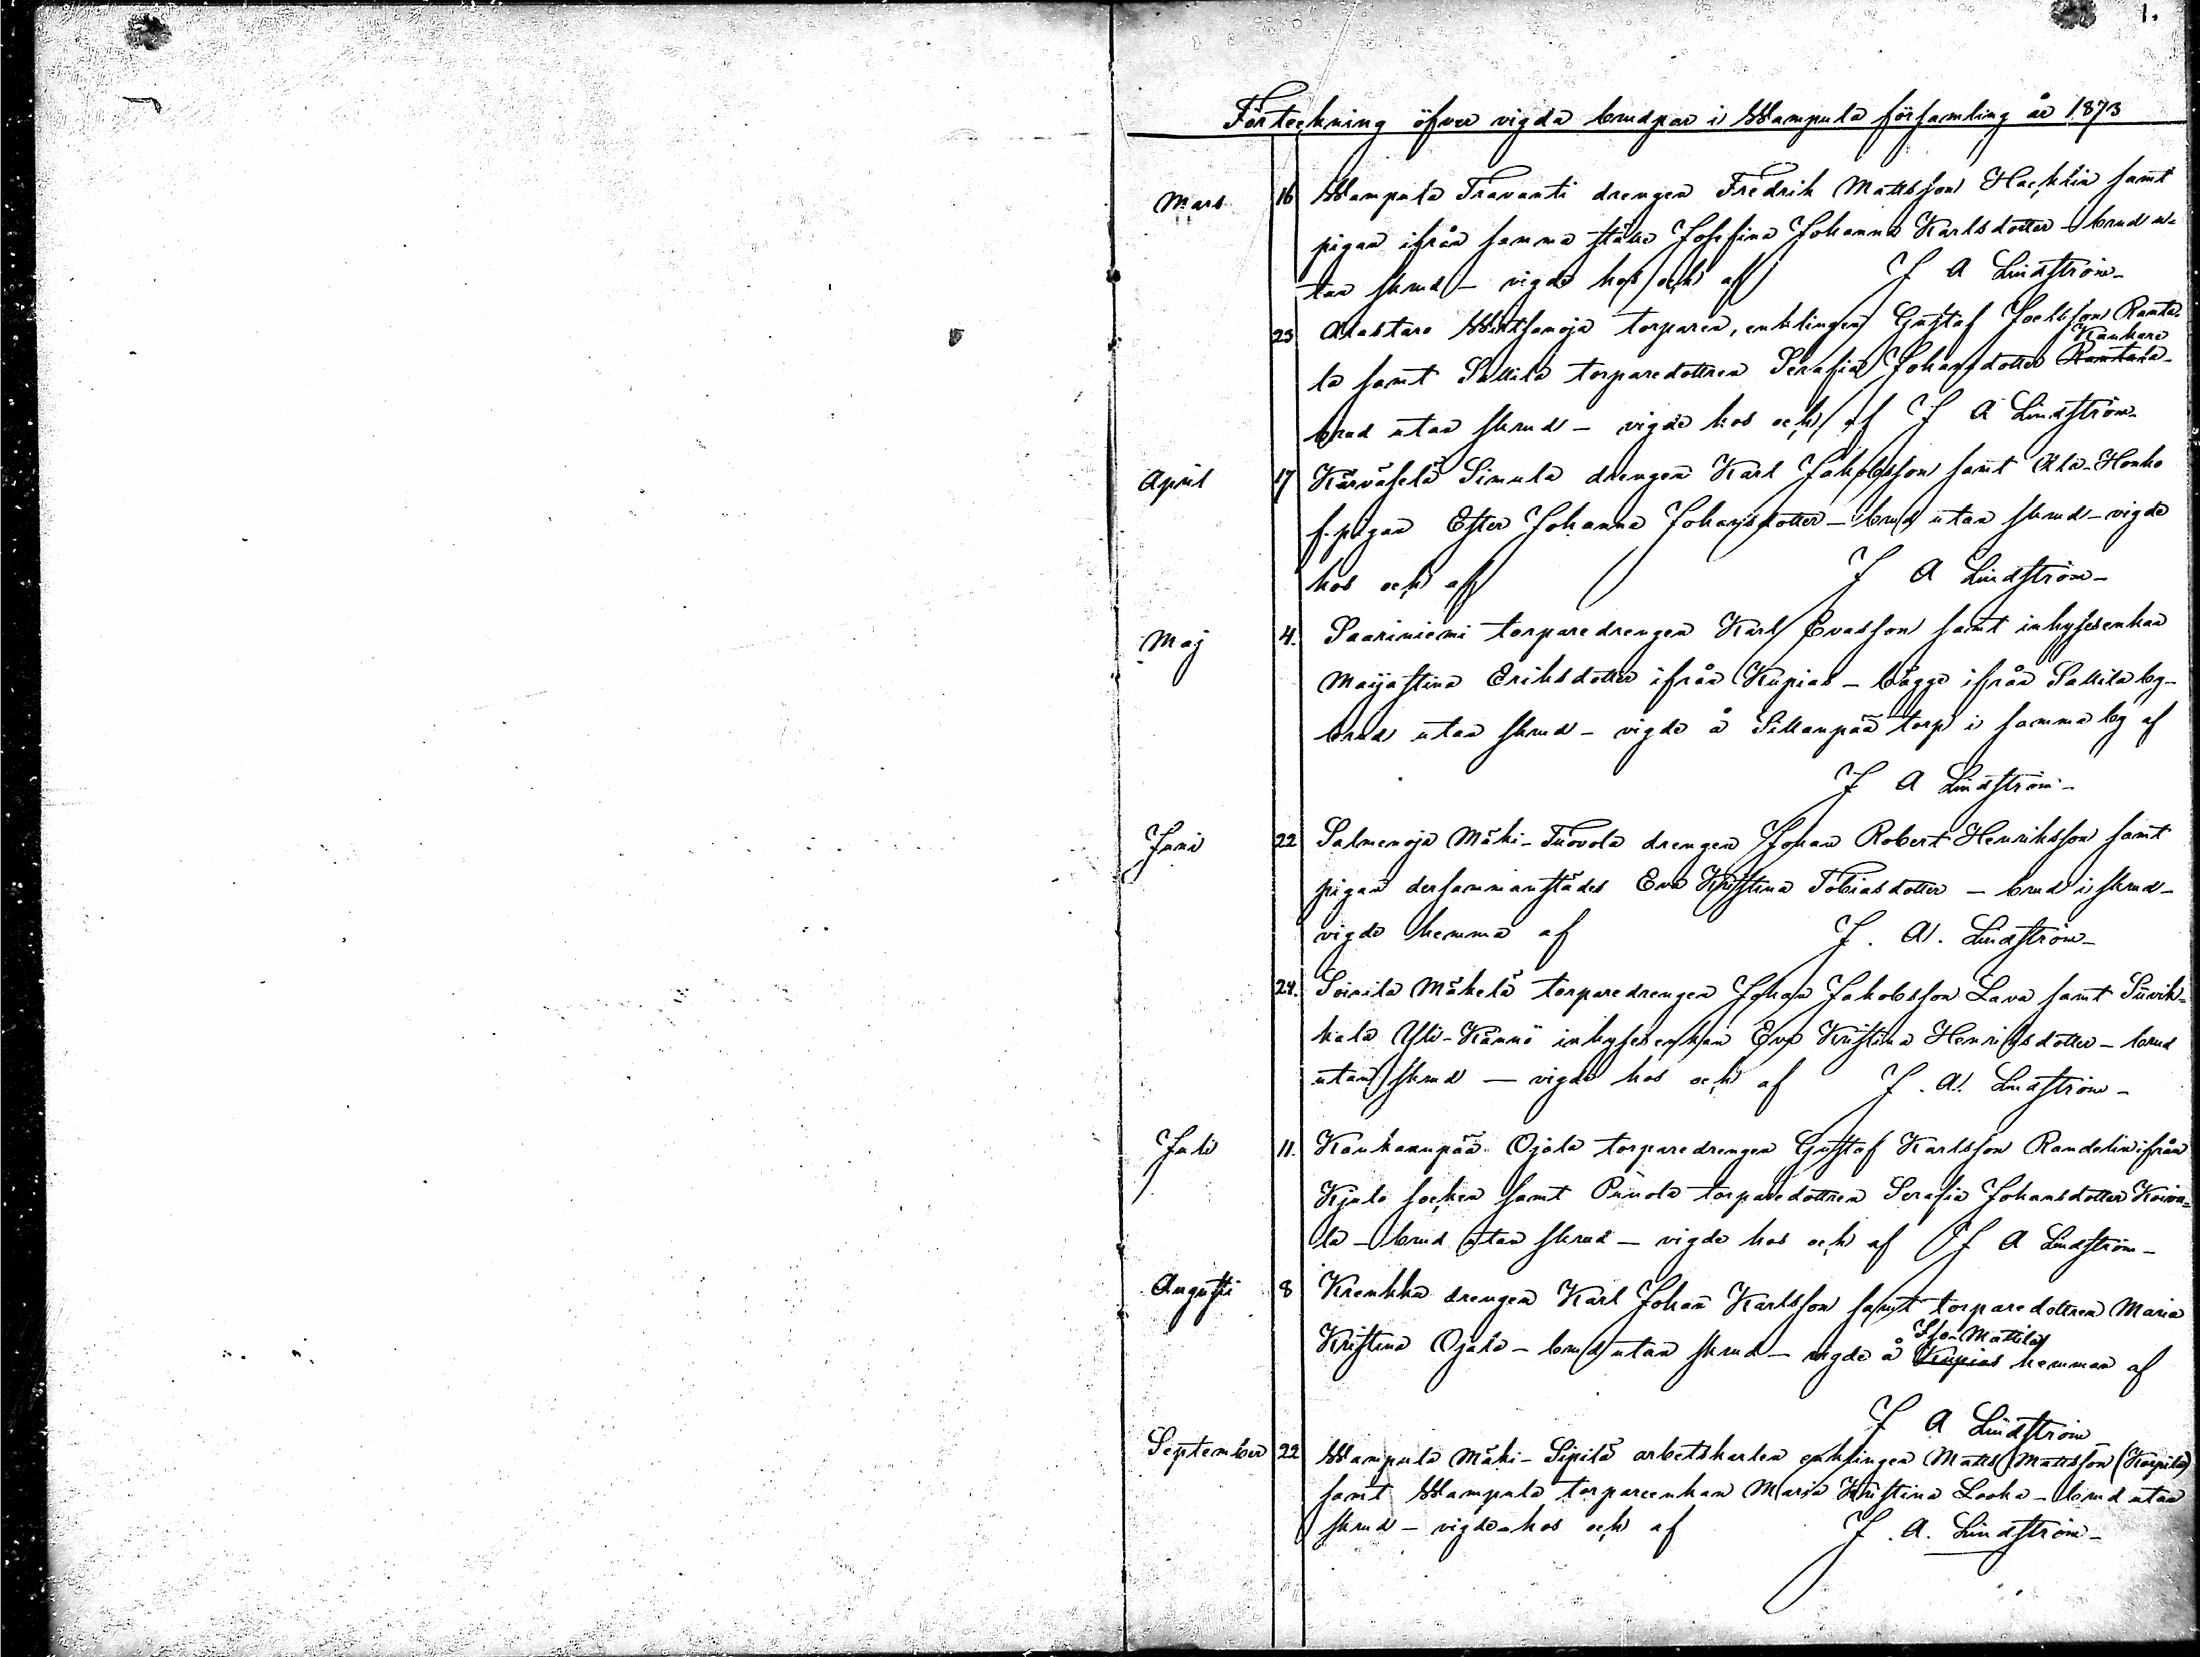 1.
Förteckning öfver vigda brudpar i Wampula församling år 1873
Mars 16 Wampula Travanti drengen Fredrik Mattsson Hacklin samt
pigan ifrån samma ställe Josefina Johanna Karlsdotter - brud u-
tan skrud - vigde hos och af J A Lindström -
23 Alastaro Wirtsanoja torparen, enklingen Gustaf Joelsson Ranta-
Kankare
la samt Sallila torparedottren Serafia Johansdotter Rantala -
brud utan skrud - vigde hos och af J A Lindström -
April 17 Kärväselä Simula drengen Karl Jakobsson samt Ala-Honko
f. pigan Ester Johanna Johansdotter - brud utan skrud - vigde
hos och af J A Lindström -
Maj 4. Saariniemi torparedrengen Karl Evasson samt inhysesenkan
Maijastina Eriksdotter ifrån Kupias - bägge ifrån Sallila by -
brud utan skrud - vigde å Sillanpää torp i samma by af
J A Lindström -
Juni 22 Salmenoja Mäki-Tuovola drengen Johan Robert Henriksson samt
pigan dersammanstädes Eva Kristina Tobiasdotter - brud i skrud -
vigde hemma af J. A. Lindström -
24. Soinila Mäkelä torparedrengen Johan Jakobsson Lava samt Suvik-
kala Yli-Kännö inhysesenkan Eva Kristina Henriksdotter - brud
utan skrud - vigde hos och af J. A. Lindström -
Juli 11. Kankaanpää Ojala torparedrengen Gustaf Karlsson Randelin ifrån
Kjulo socken samt Punola torparedottren Serafia Johansdotter Koivu-
la - brud utan skrud - vigde hos och af J A Lindström -
Augusti 8 Krenkka drengen Karl Johan Karlsson samt torparedottren Maria
Iso-Mattila
Kristina Ojala - brud utan skrud - vigde å Kupias hemman af
J A Lindström -
September 22 Wampula Mäki-Sipilä arbetskarlen enklingen Matts Mattsson (Korpila)
samt Wampula torpareenkan Maria Kristina Looka - brud utan
skrud - vigde hos och af J. A. Lindström -